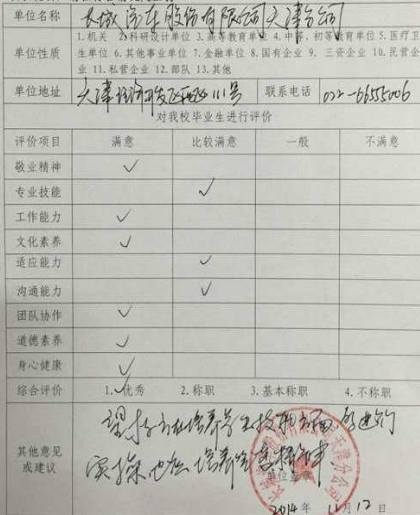 单位名称 长城汽车股份有限公司天津分公司
单位性质 1.机关 2.科研设计单位 3.高等教育单位 4.中等、初等教育单位 5.医疗卫
生单位 6.其他事业单位 7.金融单位 8.国有企业 9.三资企业 10.民营企
业 11.私营企业 12.部队 13.其他
单位地址 天津经济开发区 111号 联系电话 022-66555006
对我校毕业生进行评价
评价项目 满意 比较满意 一般 不满意
敬业精神 ✓
专业技能 ✓
工作能力 ✓
文化素养 ✓
适应能力 ✓
沟通能力 ✓
团队协作 ✓
道德素养 ✓
身心健康 ✓
综合评价 1.优秀 2.称职 3.基本称职 4.不称职
其他意见
或建议
望 在培养学生技 方面
实操 培养
单位盖章
2014年 11月12日